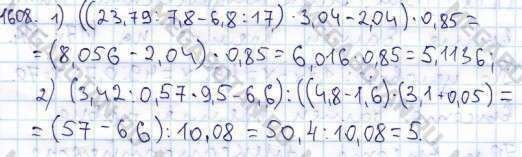 1608. 1) ((23,79:7,8-6,8:17)·3,04-2,04)·0,85=
=(8,056-2,04)·0,85=6,016·0,85=5,1136;
2) (3,42:0,57·9,5-6,6):((4,8-1,6)·(3,1+0,05)=
=(57-6,6):10,08=50,4:10,08=5.